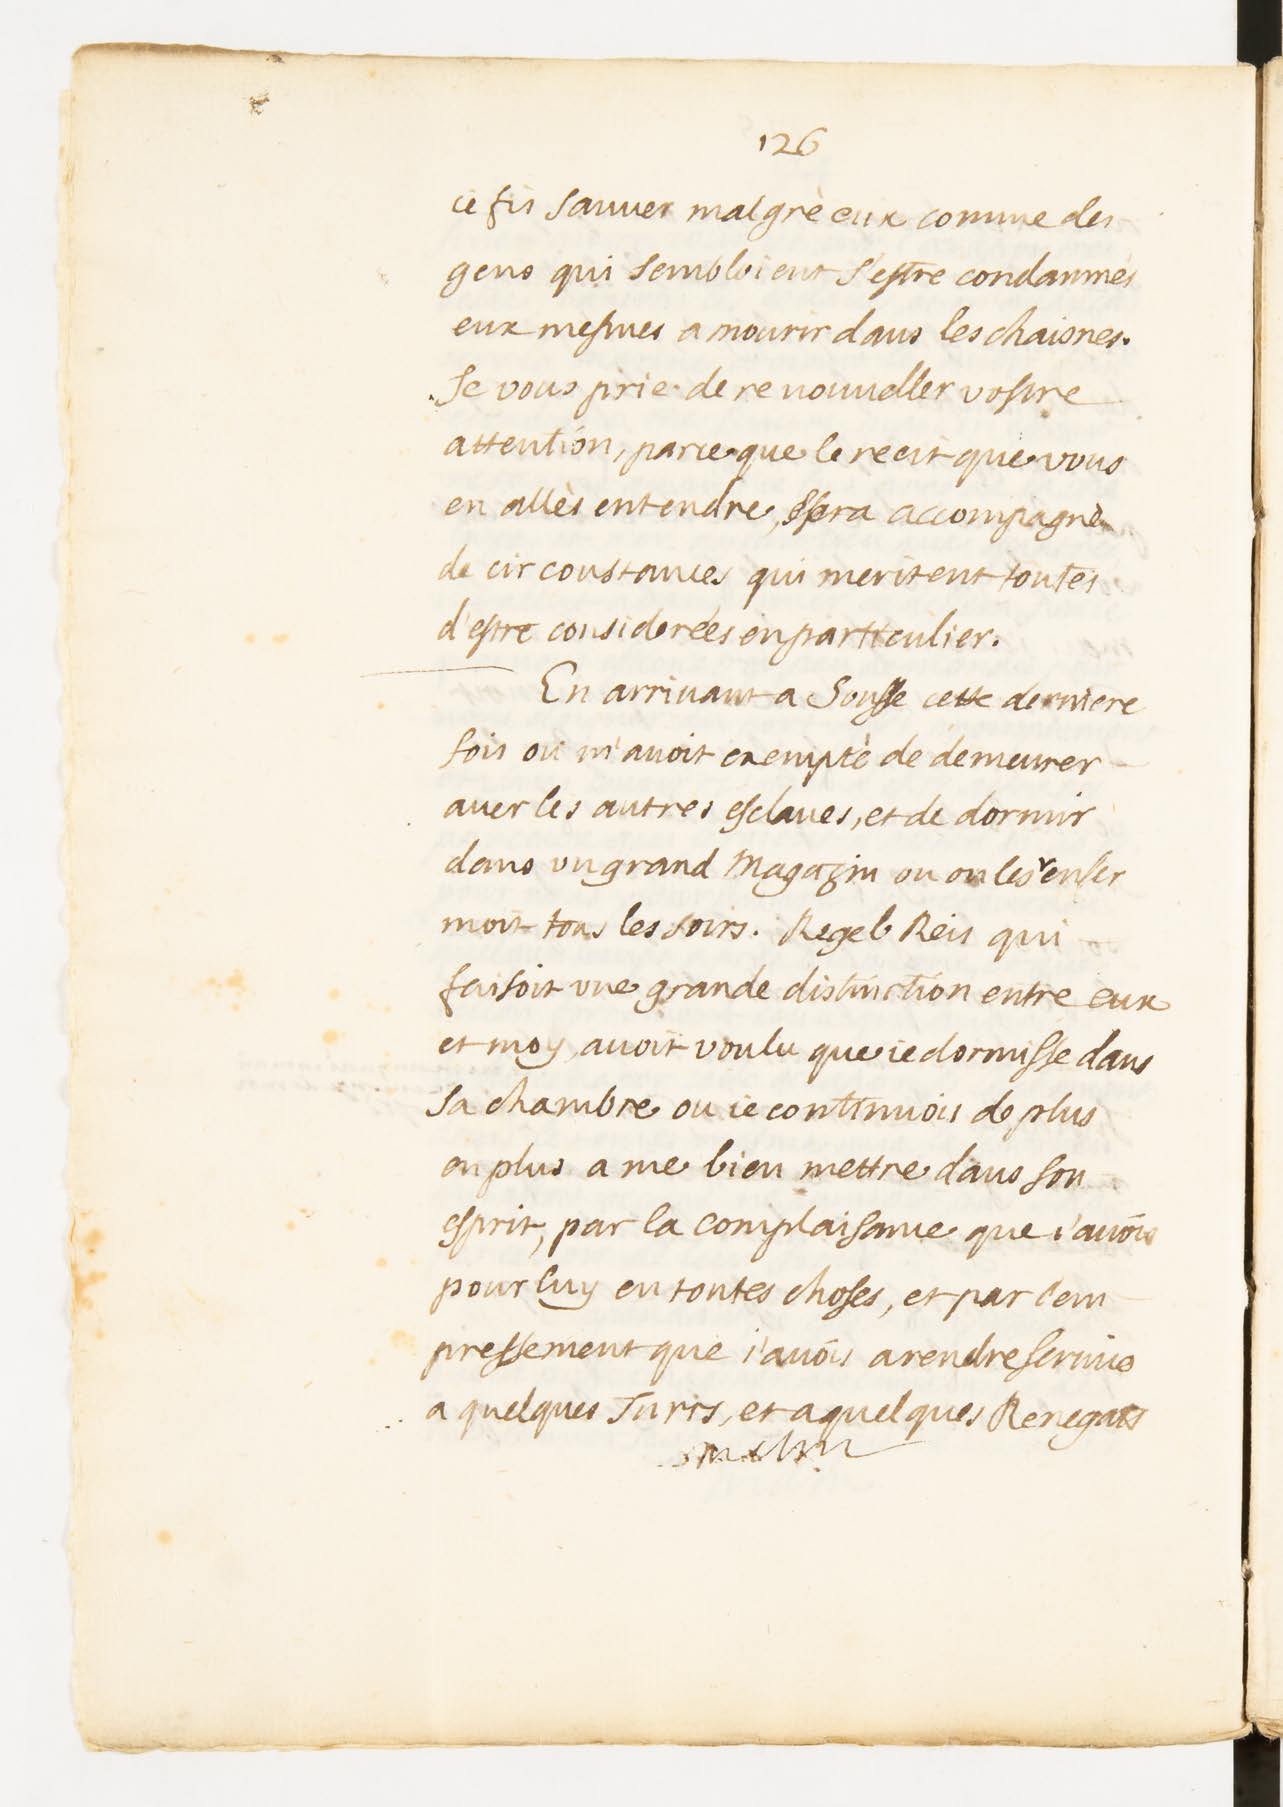 126
ie fis sauuer malgrè eux comme des
gens qui sembloient s'estre condamnés
eux mesmes a mourir dans les chaisnes.
Je vous prie de renouueller vostre
attention, parce que le recit que vous
en allès entendre, sera accompagnè
de circonstances qui meritent toutes
d'estre considerées en particulier.
En arriuant a Sousse cette derniere
fois on m'auoit exemptè de demeurer
auec les autres esclaues, et de dormir
dans vn grand Magazin ou on les renfer
moit tous les soirs. Regeb Reis qui
faisoit vne grande distinction entre eux
et moy, auoit voulu que ie dormisse dans
sa chambre ou ie continuois de plus
en plus a me bien mettre dans son
esprit, par la complaisance que i'auois
pour luy en toutes choses, et par l'em
pressement que i'auois a rendre seruice
a quelques Turcs, et a quelques Renegats